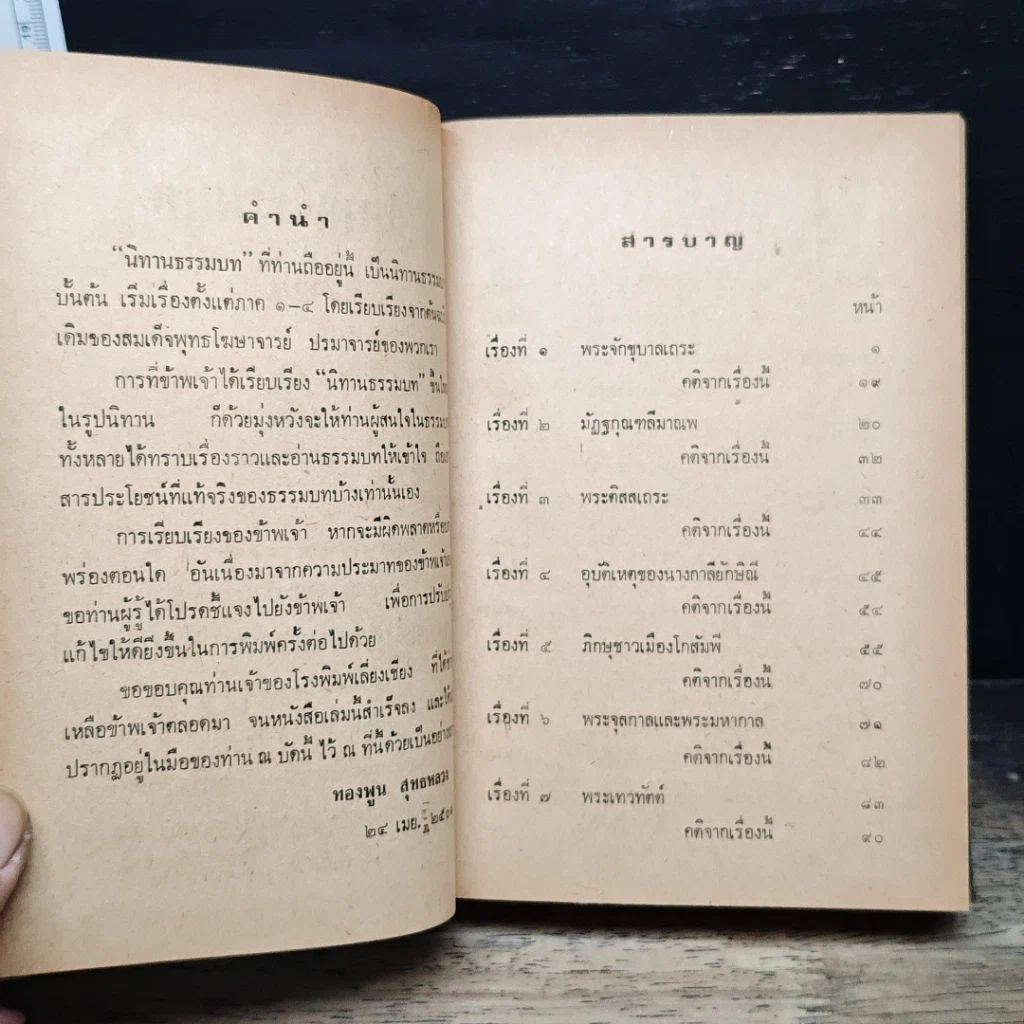 19
คำนำ
“นิทานธรรมบท” ที่ท่านถืออยู่นี้ เป็นนิทานธรรมบท
บั้นต้น เริ่มเรื่องตั้งแต่ภาค ๑—๔ โดยเรียบเรียงจาก
เดิมของสมเด็จพุทธโฆษาจารย์ ปรมาจารย์ของพวกเรา
การที่ข้าพเจ้าได้เรียบเรียง “นิทานธรรมบท”
ในรูปนิทาน ก็ด้วยมุ่งหวังจะให้ท่านผู้สนใจในธรรมบท
ทั้งหลายได้ทราบเรื่องราวและอ่านธรรมบทให้เข้าใจ
สารประโยชน์ที่แท้จริงของธรรมบทบ้างเท่านั้นเอง
การเรียบเรียงของข้าพเจ้า หากจะมีผิดพลาด
พร่องตอนใด อันเนื่องมาจากความประมาทของข้าพเจ้า
ขอท่านผู้รู้ได้โปรดชี้แจงไปยังข้าพเจ้า เพื่อการ
แก้ไขให้ดียิ่งขึ้นในการพิมพ์ครั้งต่อไปด้วย
ขอขอบคุณท่านเจ้าของโรงพิมพ์เลี่ยงเซียง
เหลือข้าพเจ้าตลอดมา จนหนังสือเล่มนี้สำเร็จลง
ปรากฏอยู่ในมือของท่าน ณ บัดนี้ ไว้ ณ ที่นี้ด้วยเป็นอย่าง
ทองพูน สุทธหลวง
๒๔ เมย.
สารบาญ
หน้า
เรื่องที่ ๑ พระจักขุบาลเถระ ๑
คติจากเรื่องนี้ ๑๙
เรื่องที่ ๒ มัฏฐกุณฑลีมาณพ ๒๐
คติจากเรื่องนี้ ๓๒
เรื่องที่ ๓ พระติสสเถระ ๓๓
คติจากเรื่องนี้ ๔๔
เรื่องที่ ๔ อุบัติเหตุของนางกาลียักษิณี ๔๕
คติจากเรื่องนี้ ๕๔
เรื่องที่ ๕ ภิกษุชาวเมืองโกสัมพี ๕๕
คติจากเรื่องนี้ ๗๐
เรื่องที่ ๖ พระจุลกาลและพระมหากาล ๗๑
คติจากเรื่องนี้ ๘๒
เรื่องที่ ๗ พระเทวทัตต์ ๘๓
คติจากเรื่องนี้ ๙๐